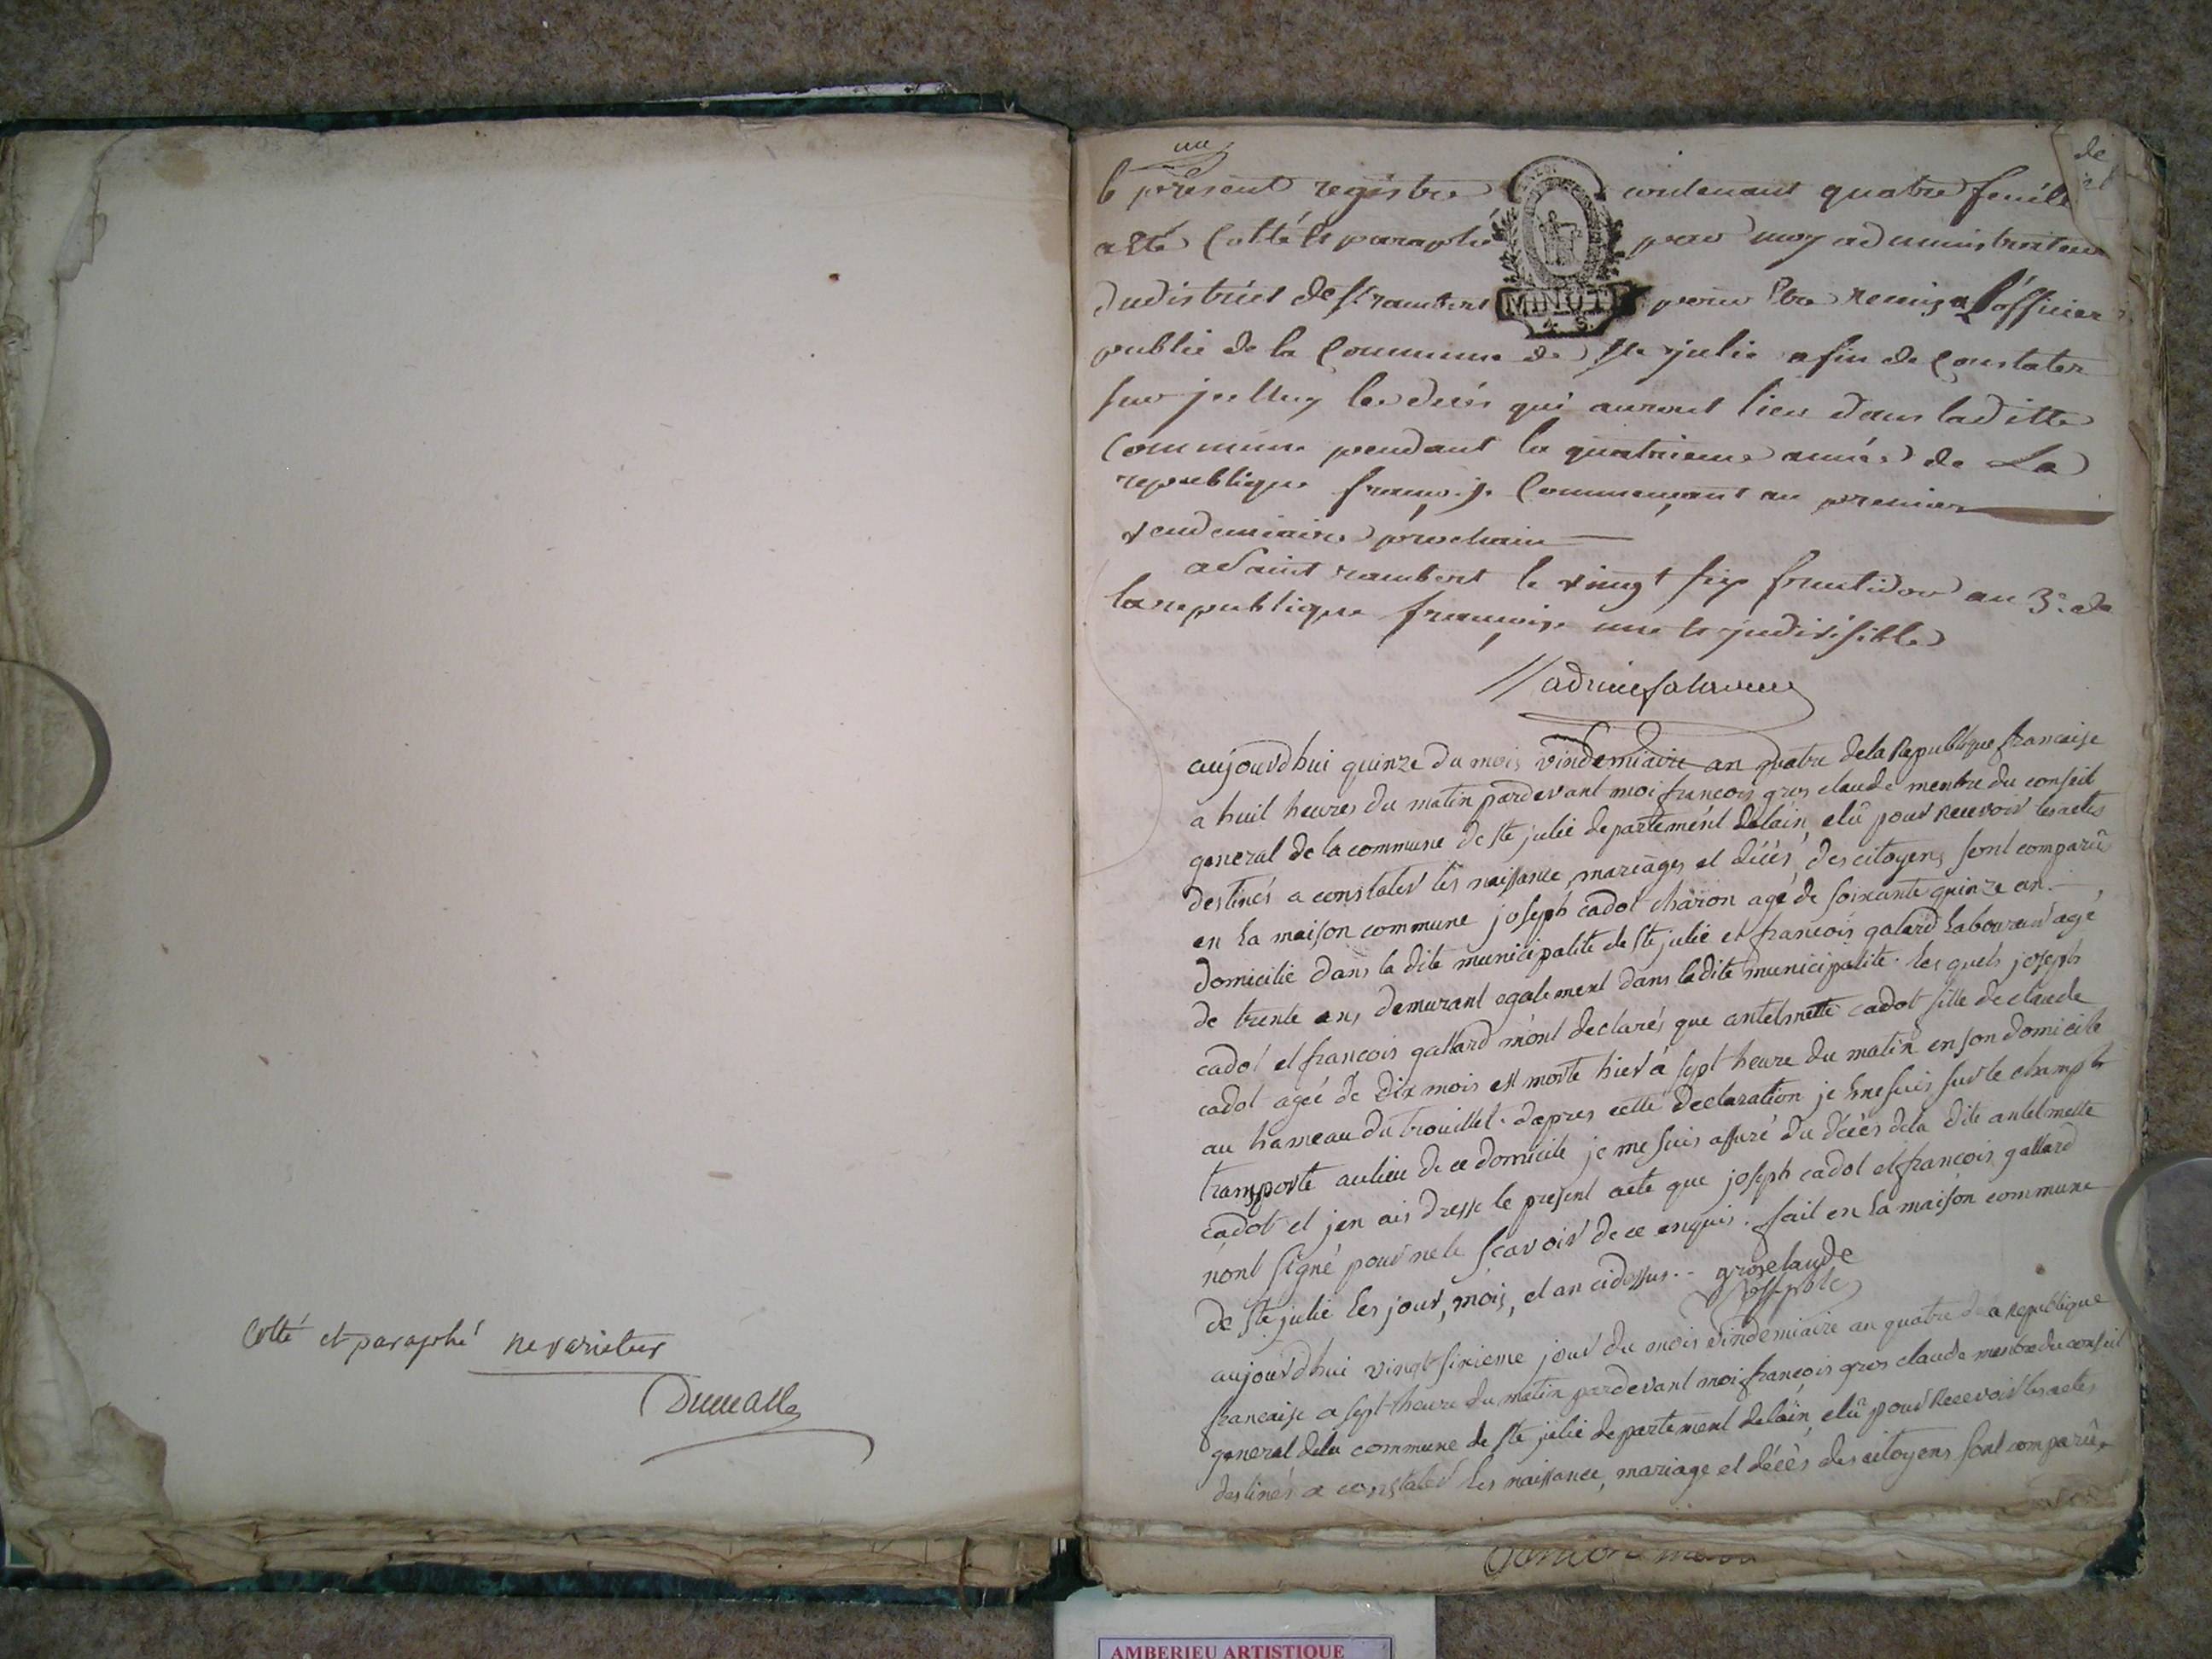 Cotté et paraphé ne varietur
une
le présent registre contenant quatre feuil
a été Cotté et paraphé par moy administrateur
du district de St rambert pour être remis a L'officier
MINUT
4. S.
public de la Commune de Ste julie afin de Constater
sur jcelluy les décés qui auront lieu dans laditte
Commune pendant la quatrieme année de La
republique françoise Commençant au premier
vendemiaire prochain
a Saint rambert le vingt six fructidor an 3e. de
la republique françoise une et jndivisible
aujourdhui quinze du mois vindemiaire an quatre dela Republique francaise
a huit heures du matin pardevant moi francois gros claude menbre du conseil
general de la commune de Ste julie departemént delain, elû pour recevoir les actes
destinés a constater les naissance, mariages et décès, des citoyens, sont comparû
en la maison commune joseph cadot charon agé de soixante quinze an.
domicilié dans la dite municipalite de Ste julie et francois galard laboureur agé
de trente ans, demurant egalement dans ladite municipalite. les quels joseph
cadot et francois gallard m'ont declarés que antelmette cadot fille de claude
cadot agéé de dix mois est morte hier à sept heure du matin en son domicile
au hameau du trouillet. dapres cette declaration je me suis sur le champ
transporté au lieu de ce domicile je me suis assuré du décès dela dite antelmette
cadot et jen ais dresse le present acte que joseph cadot et francois gallard
n'ont signé pour ne le scavoir de ce enquis. fait en la maison commune
de Ste julie les jour, mois, et an cidessus.. grosclaude
off. public
aujourdhui vingt sixieme jour du mois vindemiaire an quatre de la republique
francaise a sept heure du matin pardevant moi francois gros claude menbre du conseil
general dela commune de Ste julie departement delain, elû pour recevoir les actes
destinés a constater les naissance, mariage et décès des citoyens sont comparû
AMBERIEU ARTISTIQUE